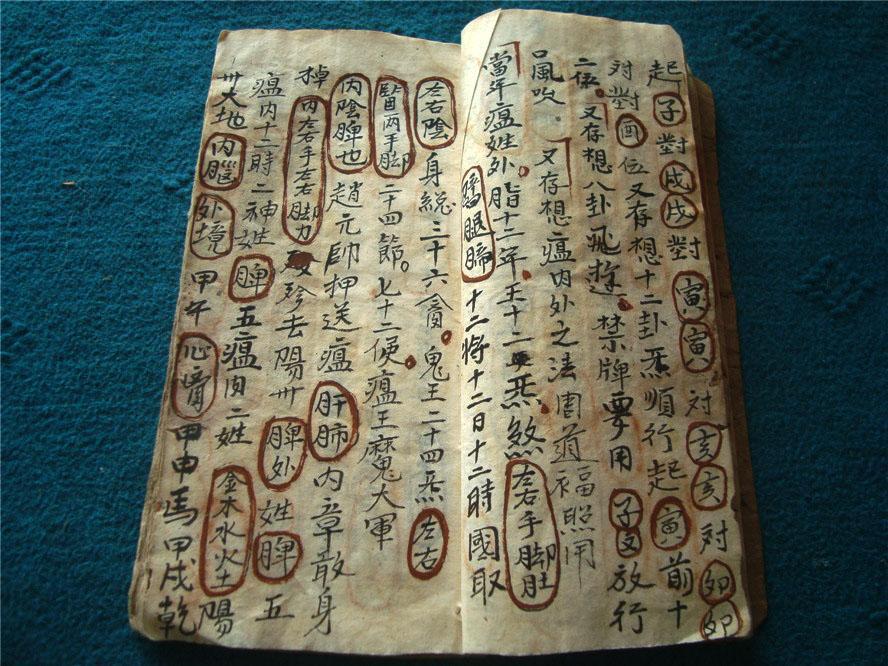 起子對戍戌對寅寅对亥亥对卯卯
対對酉伍又存想十二卦炁順行起寅前十
二伍又存想八卦飛遊禁牌要用子文放行
口風吹又存想瘟内外之法周道福照用
當年瘟姓外脂十二年王十二炁煞左右手脚肚
腿蹄十二將十二日十二時國取
左右陰身総三十六禽鬼王二十四炁左右
醫两手脚二十四節七十二侯瘟王魔大軍
内陰脾也趙元帥押送瘟肝肺内章敢身
棹内左右手左右脚力珍去陽卅脾外姓脾五
瘟内十二時二神姓脾五瘟内二姓金木水火土陽
卅大地内腦外境甲午心腎甲申馬甲戌乾